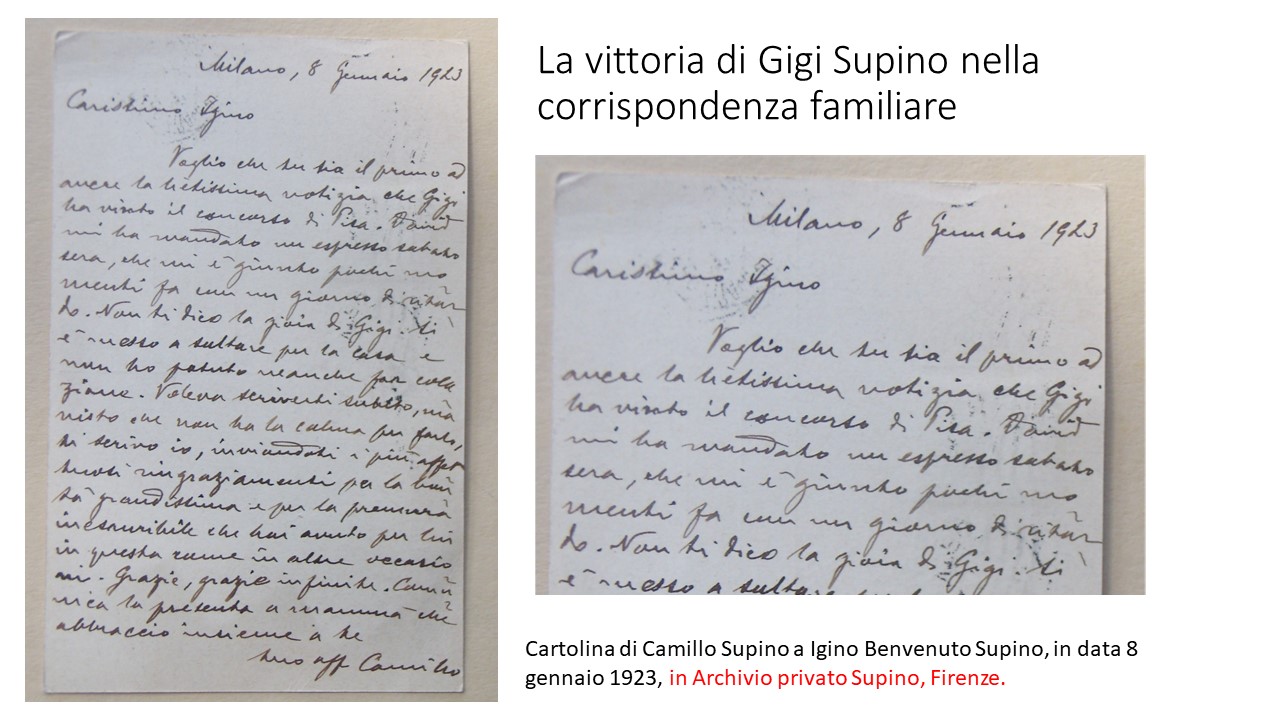 Milano, 8 Gennaio 1923
Carissimo Igino
Voglio che tu sia il primo ad
avere la lietissima notizia che Gigi
ha vinto il concorso di Pisa. David
mi ha mandato un espresso sabato
sera, che mi è giunto pochi mo
menti fa con un giorno di ritar
do. Non ti dico la gioia di Gigi. Si
è messo a saltare per la casa e
non ha potuto neanche far cola
zione. Voleva scriverti subito, ma
visto che non ha la calma per farlo,
ti scrivo io, inviandoti i più affet
tuosi ringraziamenti per la bon
tà grandissima e per la premura
inesauribile che hai avuto per lui
in questa come in altre occasio
ni. Grazie, grazie infinite. Comu
nica la presente a mamma che
abbraccio insieme a te
tuo aff Camillo
La vittoria di Gigi Supino nella
corrispondenza familiare
Milano, 8 Gennaio 1923
Carissimo Igino
Voglio che tu sia il primo ad
avere la lietissima notizia che Gigi
ha vinto il concorso di Pisa. David
mi ha mandato un espresso sabato
sera, che mi è giunto pochi mo
menti fa con un giorno di ritar
do. Non ti dico la gioia di Gigi. Si
è messo a saltare
Cartolina di Camillo Supino a Igino Benvenuto Supino, in data 8
gennaio 1923, in Archivio privato Supino, Firenze.